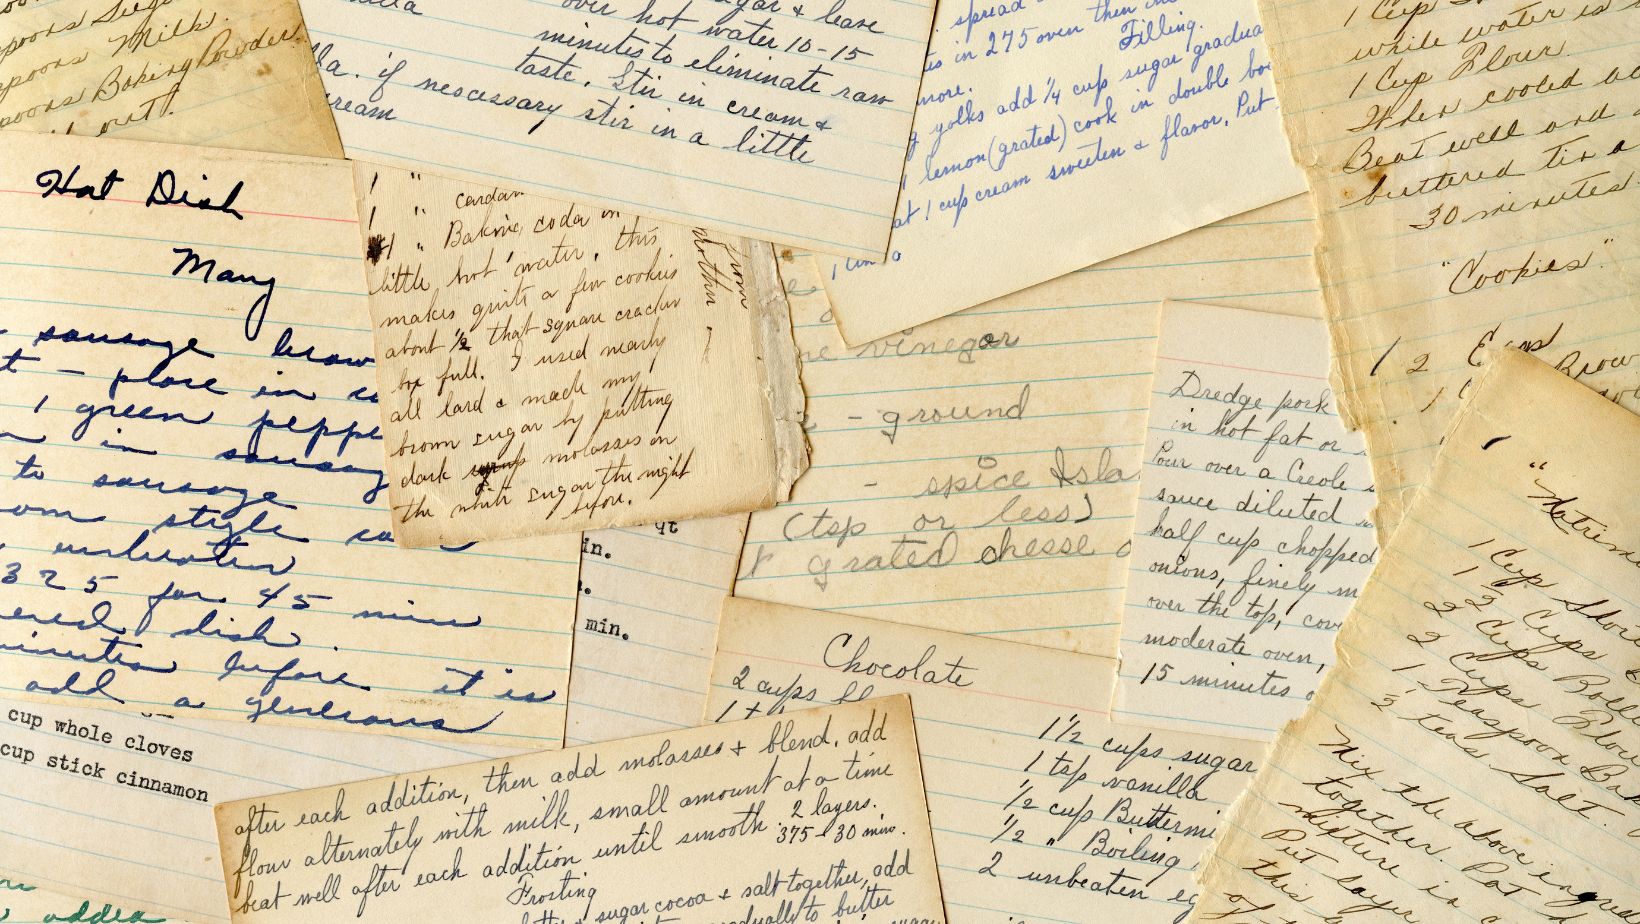 spoons Milk
spoons Baking Powder.
out.
over hot water 10-15
minutes to eliminate raw
taste. Stir in cream &
if nescessary stir in a little
ream
spread
in 275 oven then in
Filling.
more.
yolks add 1/4 cup sugar gradua
1 lemon (grated) cook in double boi
at 1 cup cream sweeten & flavor. Put
1 Cup
while water is
1 Cup Flour
When cooled ad
Beat well and
buttered tin a
30 minutes
"Cookies".
1 2 Eggs
Brow
Hot Dish
Mary
sausage brow
t - place in
1 green peppe
in sausag
to sausage
om style
325 for 45 min
ered dish
minutes before it is
add a generous
1 " cardam
1 "
1 " Baking soda in
little hot water. this
makes quite a few cookies
about 1/2 that square cracker
box full. I used nearly
all lard & made my
brown sugar by putting
dark syrup molasses in
the white sugar the night
before.
from
mother
vinegar
- ground
- spice Isla
(tsp or less)
grated chesse
Dredge pork
in hot fat or
Pour over a Creole
sauce diluted
half cup chopped
onions, finely m
over the top, cov
moderate oven,
15 minutes o
qt
in.
min.
Chocolate
2 cups
1 1/2 cups sugar
1 tsp vanilla
1/2 cup Buttermi
1/2 " Boiling
2 unbeaten eg
cup whole cloves
cup stick cinnamon
added
after each addition, then add molasses & blend. add
flour alternately with milk, small amount at a time
beat well after each addition until smooth. 2 layers.
375 - 30 mins.
Frosting
sugar cocoa & salt together, add
gradually to butter
1 Cup Shor
1 1/2 Cups
2 Cups Rolle
2 Cups Flou
1 Teaspoon Bak
1/2 teas Salt.
Mix the above ingre
together. Pat
mixture in
Put layer
this
of